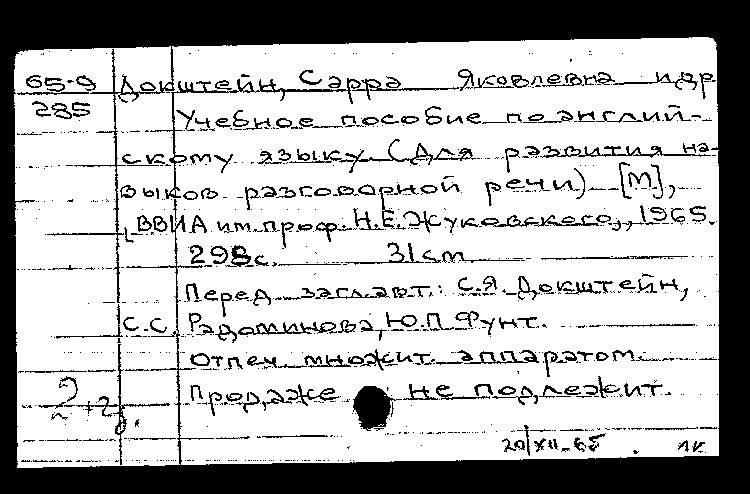 65-9 Докштейн, Сарра Яковлевна и др
285 Учебное пособие по англий-
скому языку. (Для развития на-
выков разговорной речи) [М],
ВВИА им. проф. Н.Е. Жуковского, 1965.
298 с. 31 см
Перед загл. авт.: С.Я. Докштейн,
С.С. Радоминова, Ю.П Фунт.
Отпеч. множит. аппаратом.
Продаже не подлежит.
2+2д.
20/XII-65